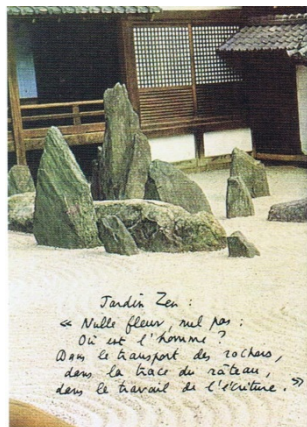 Jardin Zen :
« Nulle fleur, nul pas :
Où est l'homme ?
Dans le transport des rochers,
dans la trace du râteau,
dans le travail de l'écriture. »